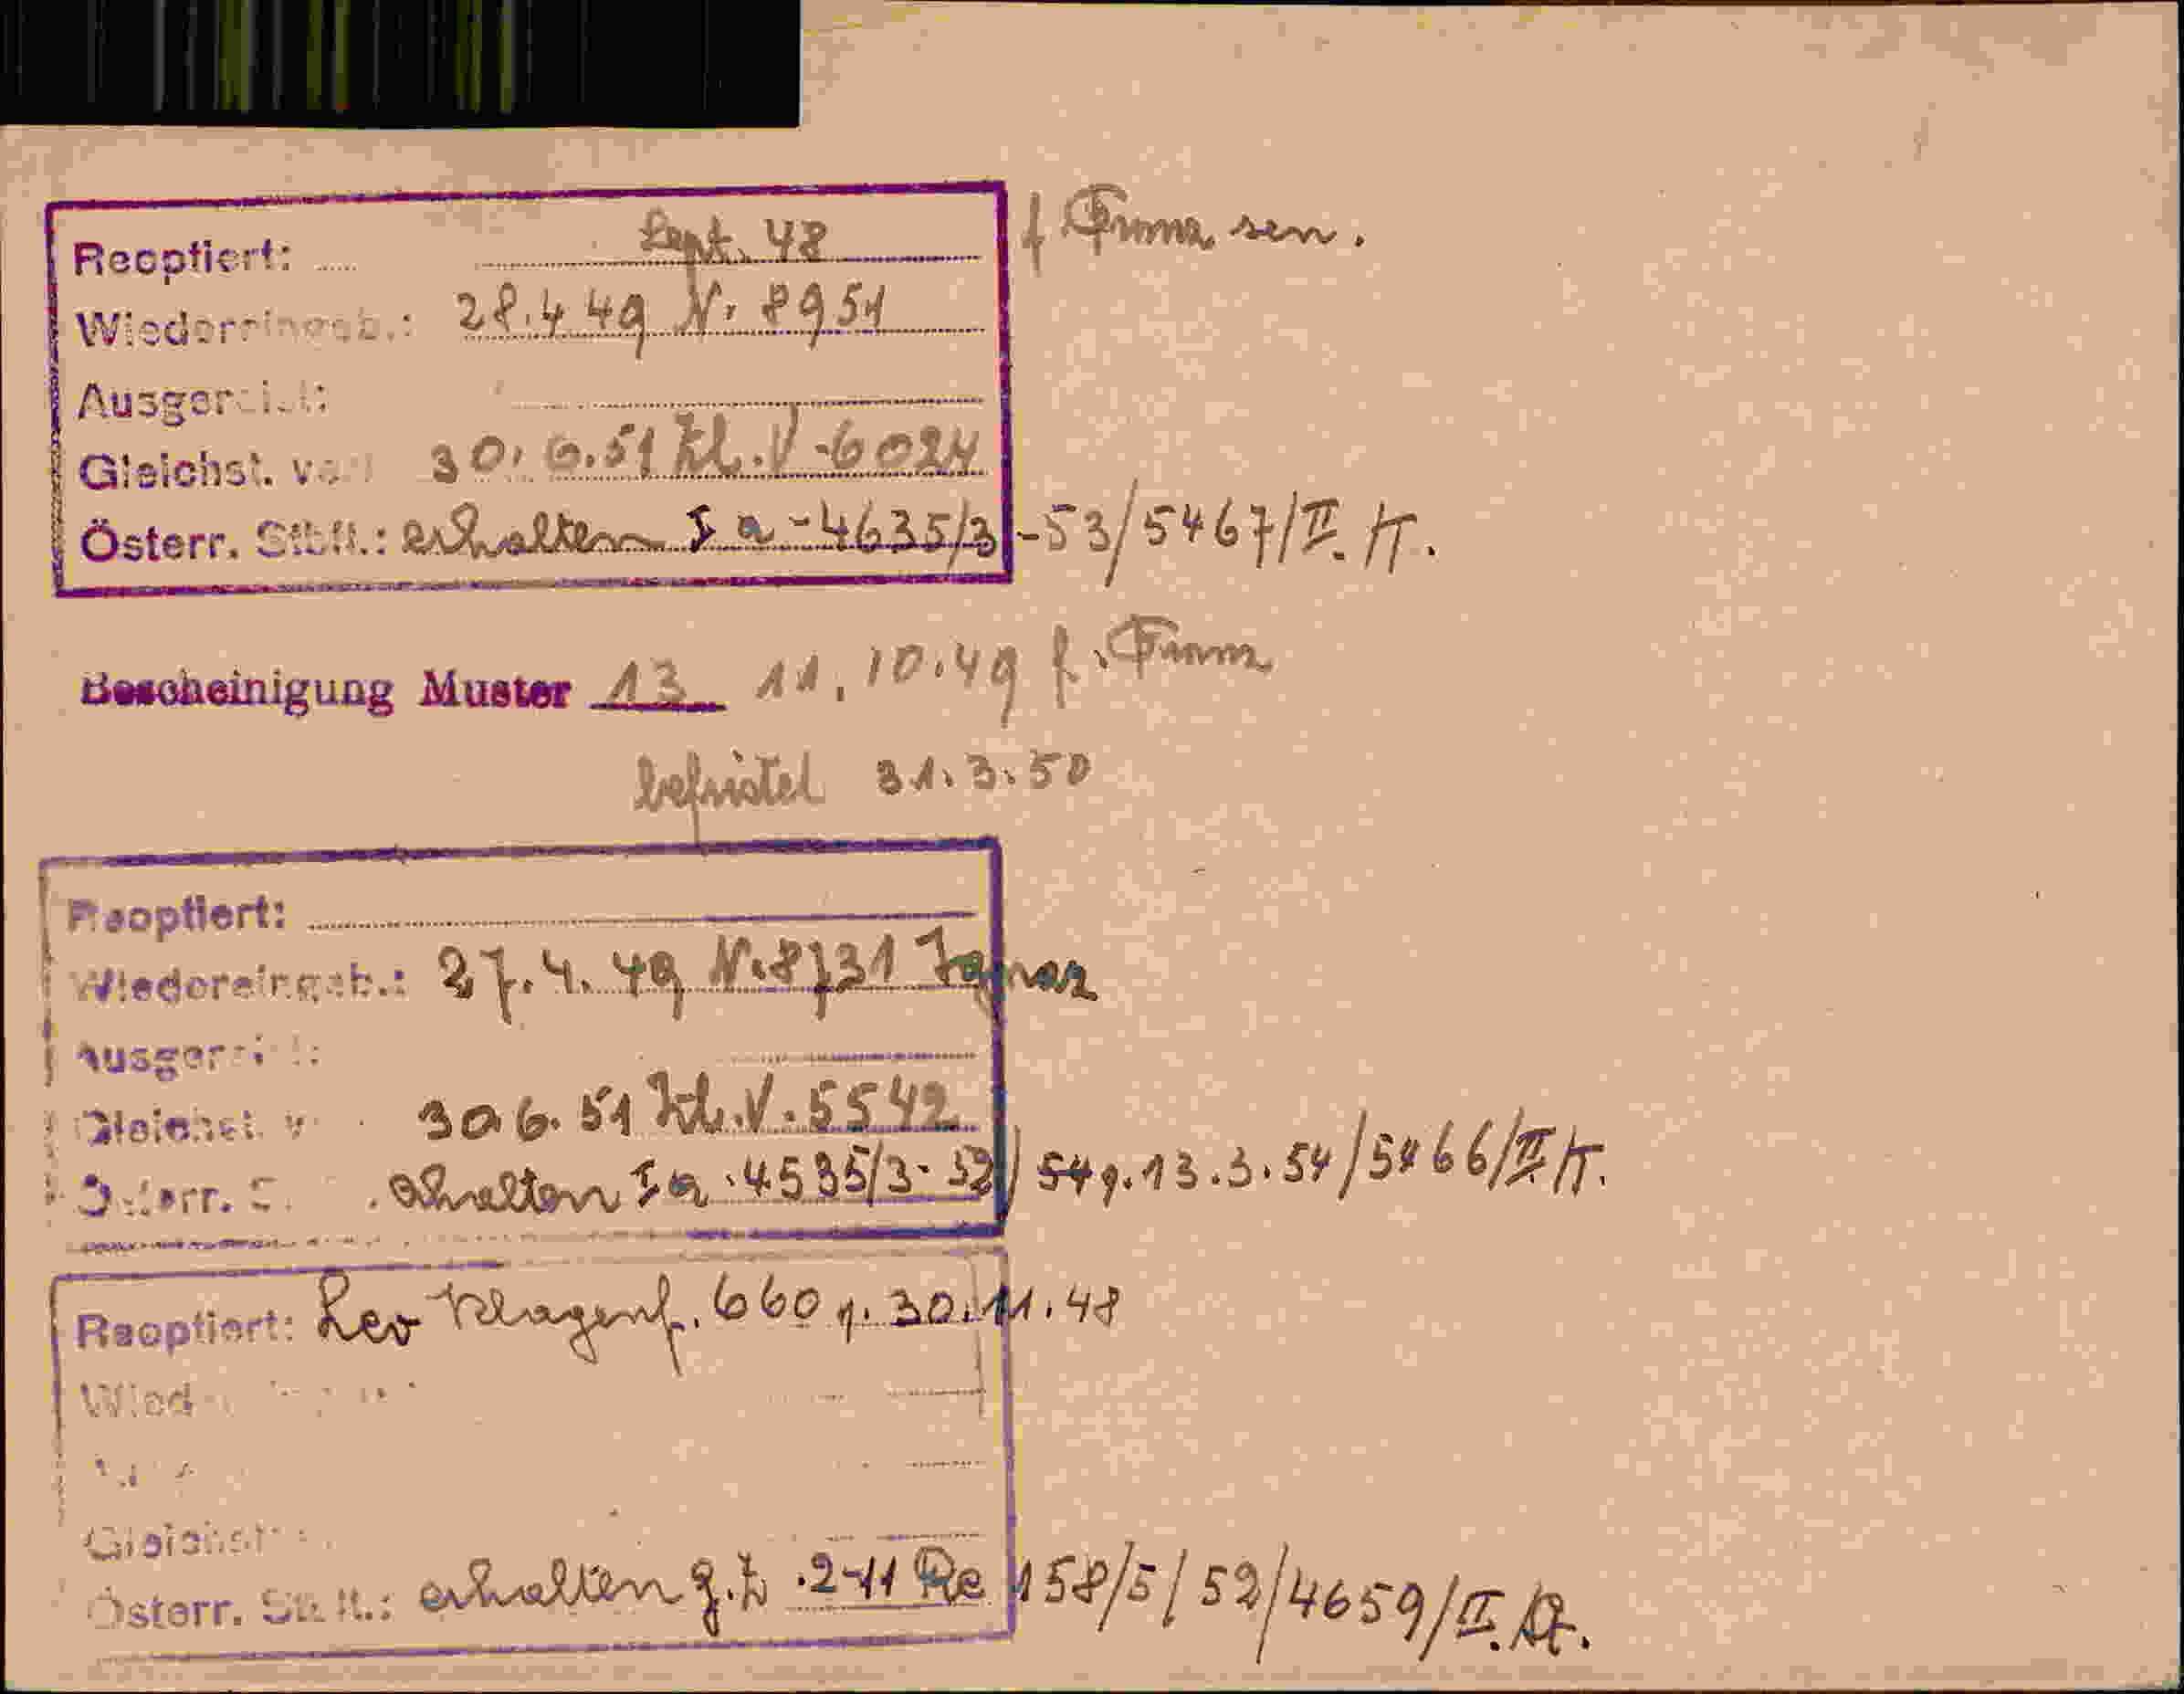 Reoptiert: Sept. 48 f Franz sen.
Wiedereingeb.: 28.4.49 Nr 8951
Ausgereist:
Gleichst. v. 30.6.51 Kl.V-6024
Österr. Stbft.: erhalten Ia-4635/3-53/5467/II.
Bescheinigung Muster 13 11.10.49 f. Franz
befristet 31.3.50
Reoptiert:
Wiedereingeb.: 27.4.49 N.8731 Ignaz
Ausgereist:
Gleichst. v. 30.6.51 Kl.V.5542
Österr. erhalten Ia.4535/3-53/54 v.13.3.54/5466/II
Reoptiert: Leo Klagenf. 660 v. 30.11.48
Wied
Gleichst
Österr. Stbft.: erhalten g.Z. .2-11 Re 158/5/52/4659/II.